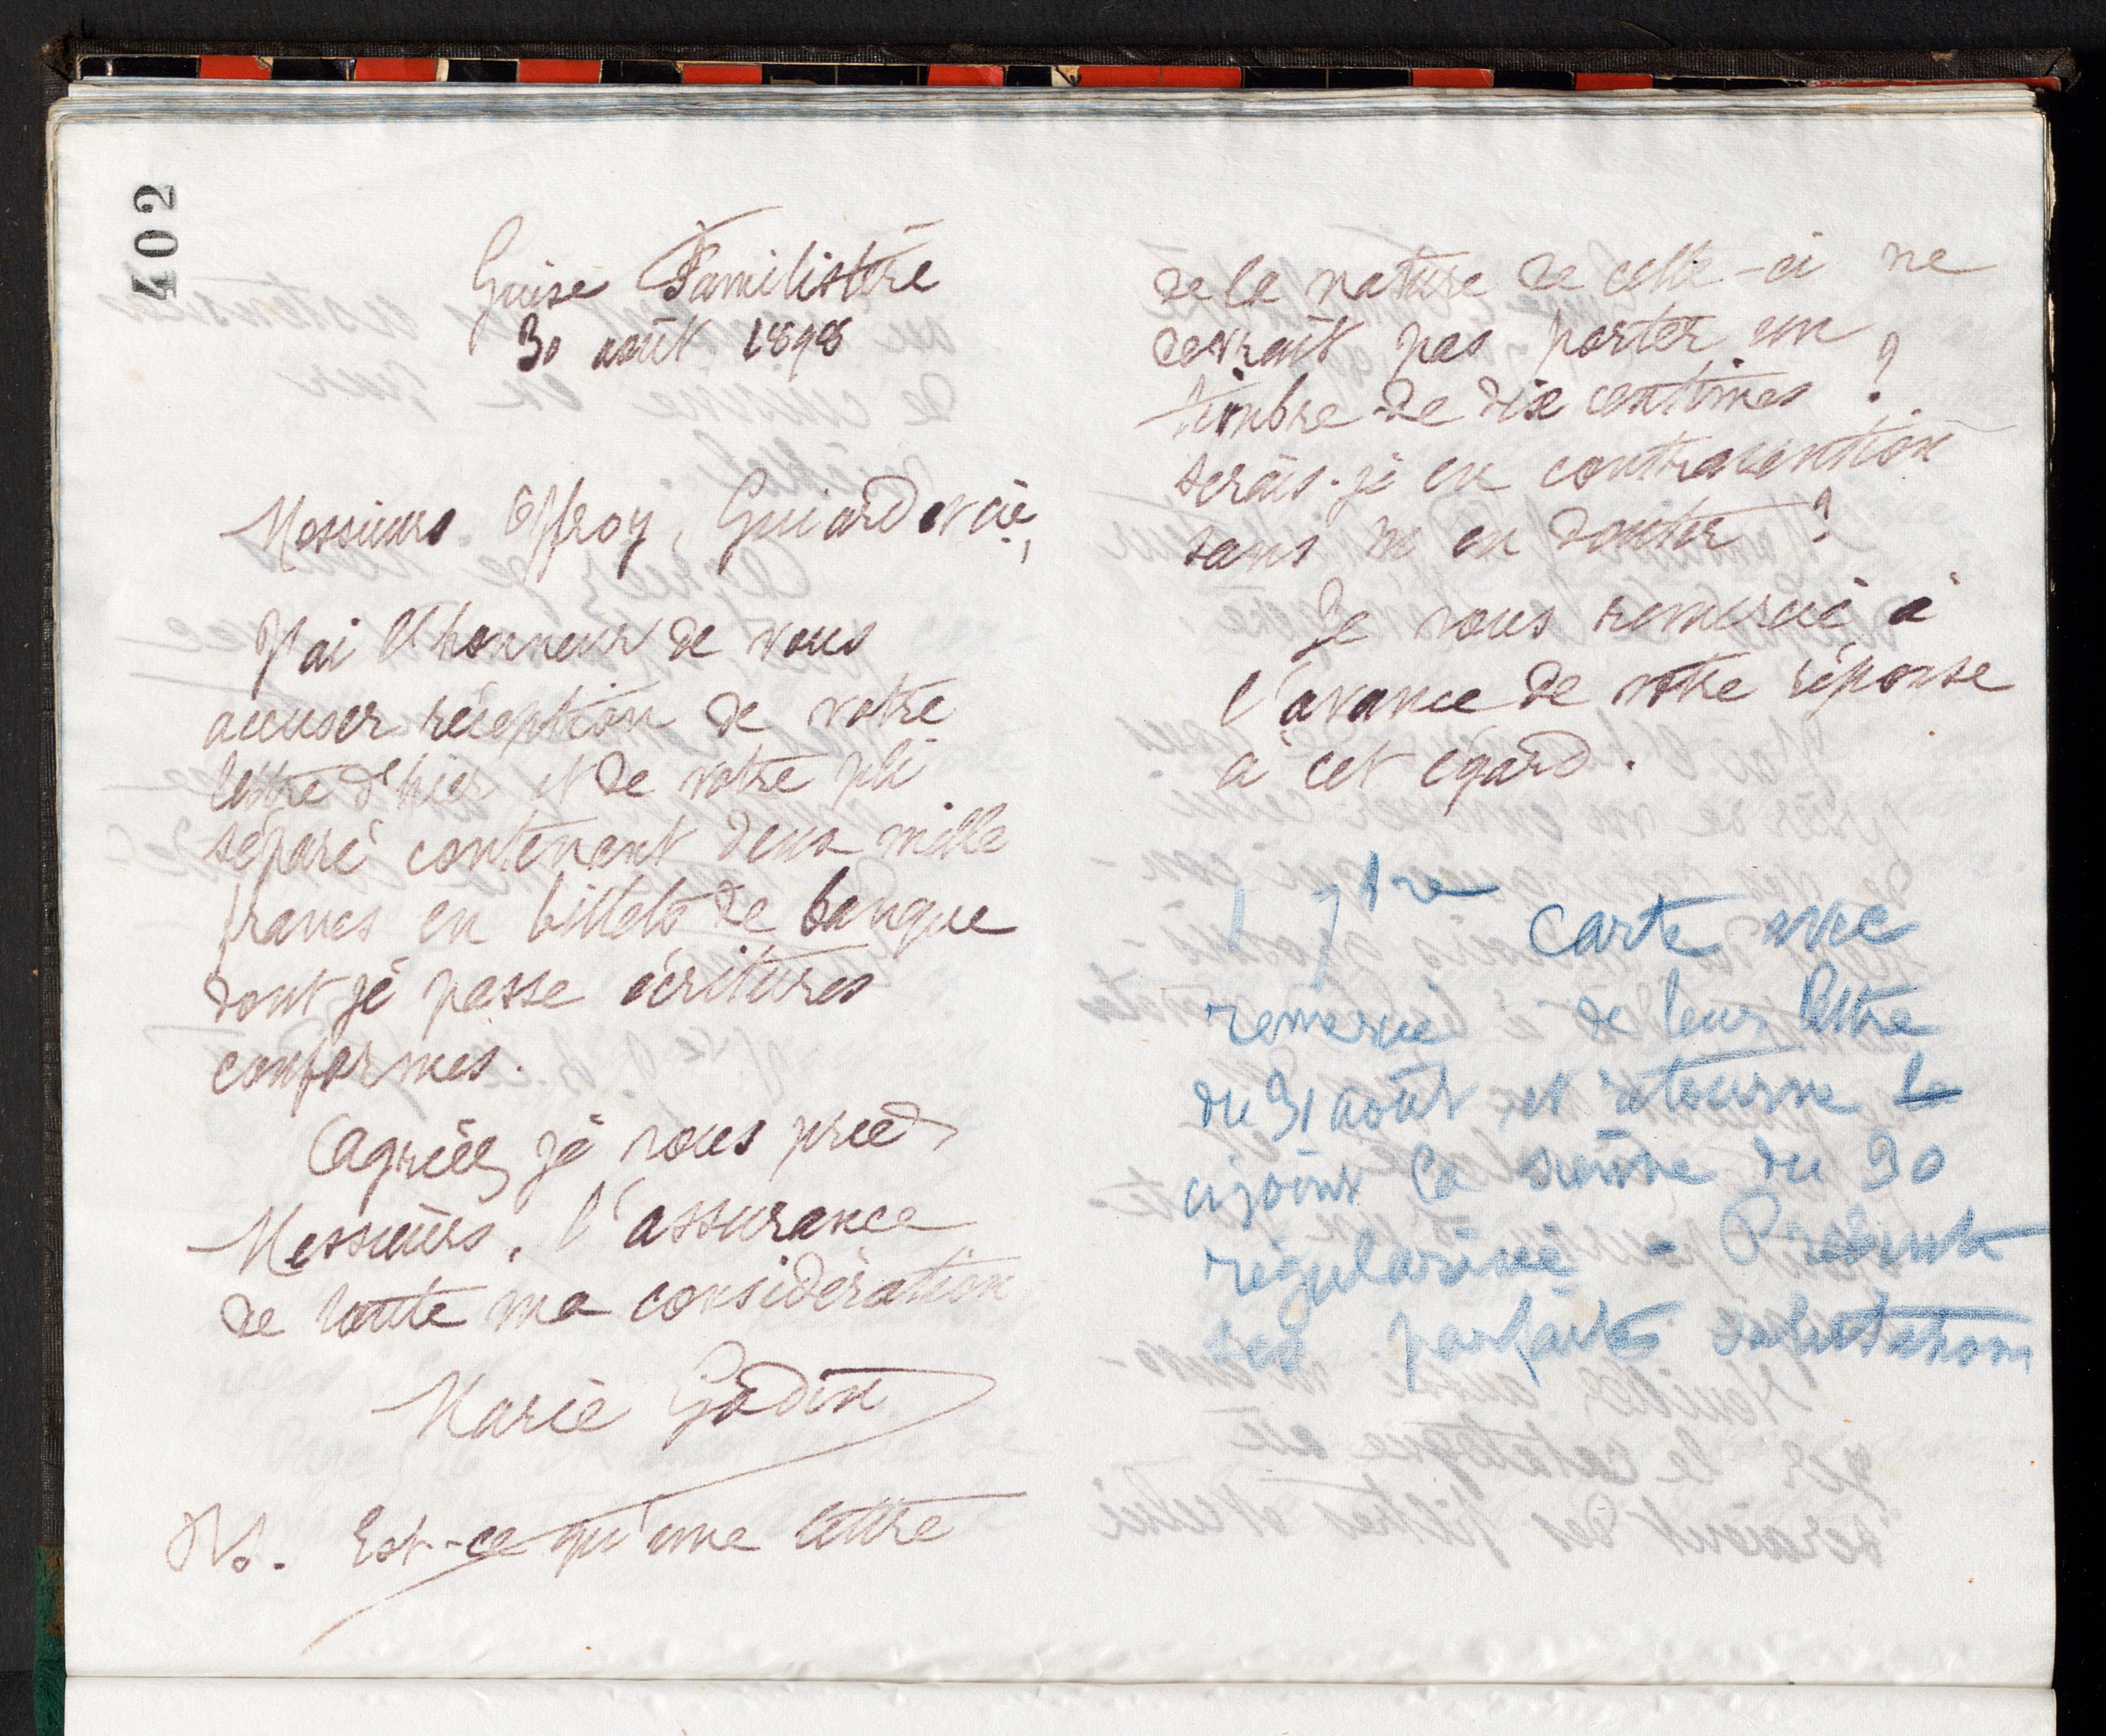 402
Guise Familistère
30 août 1898
Messieurs Offroy, Guiard et Cie,
J'ai l'honneur de vous
accuser réception de votre
lettre d'hier et de votre pli
séparé contenant deux mille
francs en billets de banque
dont je passe écritures
conformes.
Agréez, je vous prie,
Messieurs, l'assurance
de toute ma considération
Marie Godin
N.B. Est-ce qu'une lettre
de la nature de celle-ci ne
devrait pas porter un
timbre de dix centimes ?
serais-je en contravention
sans m'en douter ?
Je vous remercie à
l'avance de votre réponse
à cet égard.
1 7bre Carte avec
remercie de leur lettre
du 31 août et retourne le
cijoint la sienne du 30
régularisée - Présente
ses parfaites salutations